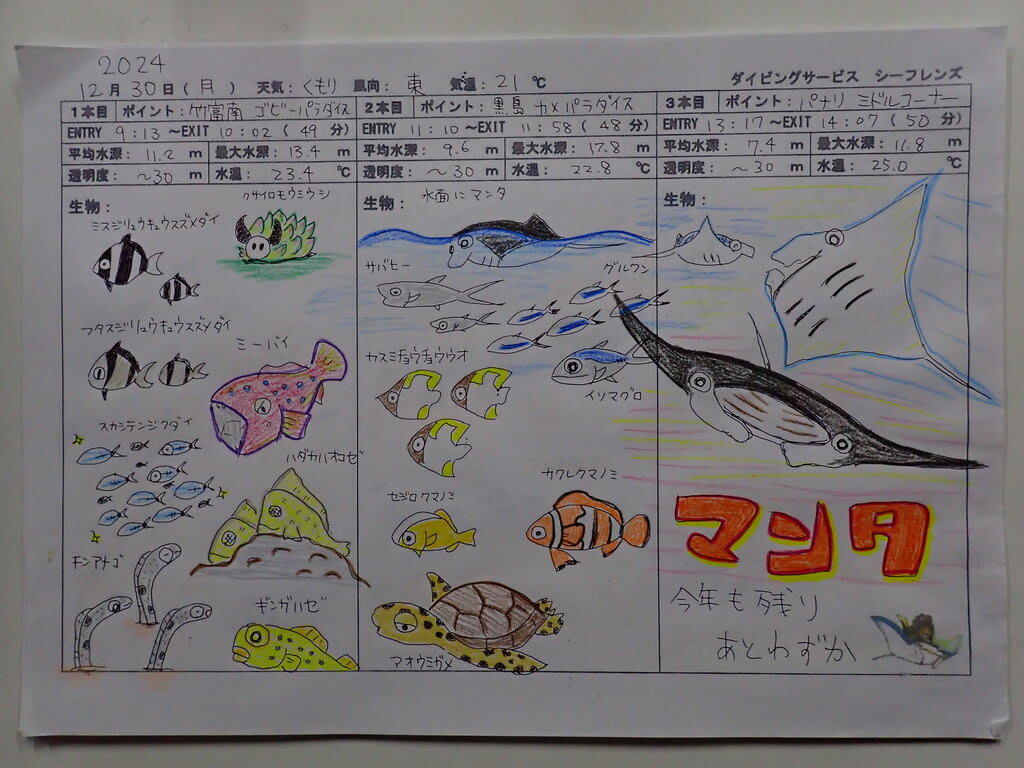 2024
12月30日(月) 天気:くもり 風向:東 気温:21℃ ダイビングサービス シーフレンズ
1本目 ポイント:竹富南 ゴビーパラダイス
ENTRY 9:13 ～EXIT 10:02 (49分)
平均水深:11.2 m 最大水深:13.4 m
透明度:～30 m 水温:23.4 ℃
生物:
クサイロモウミウシ
ミスジリュウキュウスズメダイ
フタスジリュウキュウスズメダイ
ミーバイ
スカシテンジクダイ
ハダカハオコゼ
チンアナゴ
ギンガハゼ
2本目 ポイント:黒島 カメパラダイス
ENTRY 11:10 ～EXIT 11:58 (48分)
平均水深:9.6 m 最大水深:17.8 m
透明度:～30 m 水温:22.8 ℃
生物:
水面にマンタ
サバヒー
グルクン
カスミチョウチョウウオ
イソマグロ
カクレクマノミ
セジロクマノミ
アオウミガメ
3本目 ポイント:パナリ ミドルコーナー
ENTRY 13:17 ～EXIT 14:07 (50分)
平均水深:7.4 m 最大水深:11.8 m
透明度:～30 m 水温:25.0 ℃
生物:
マンタ
今年も残り
あとわずか